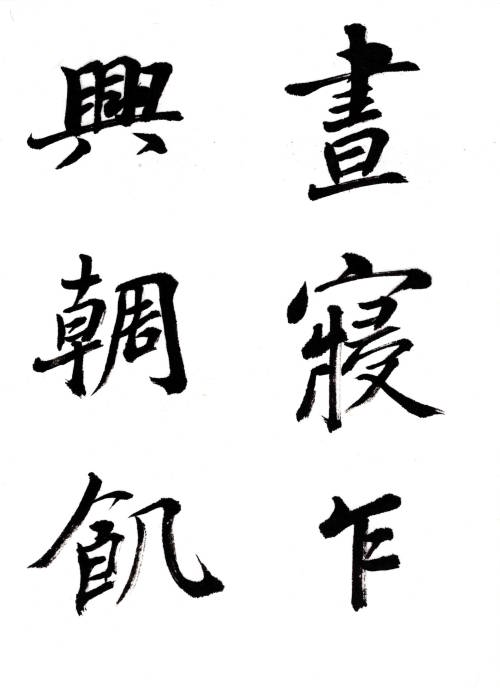 晝寢乍
興輖飢